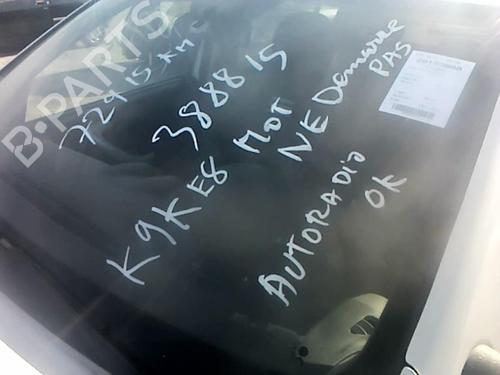 B-PARTS
72915 KM
388815
K9KE8 MOT
NE Demarre
PAS
AUTORADIO
OK